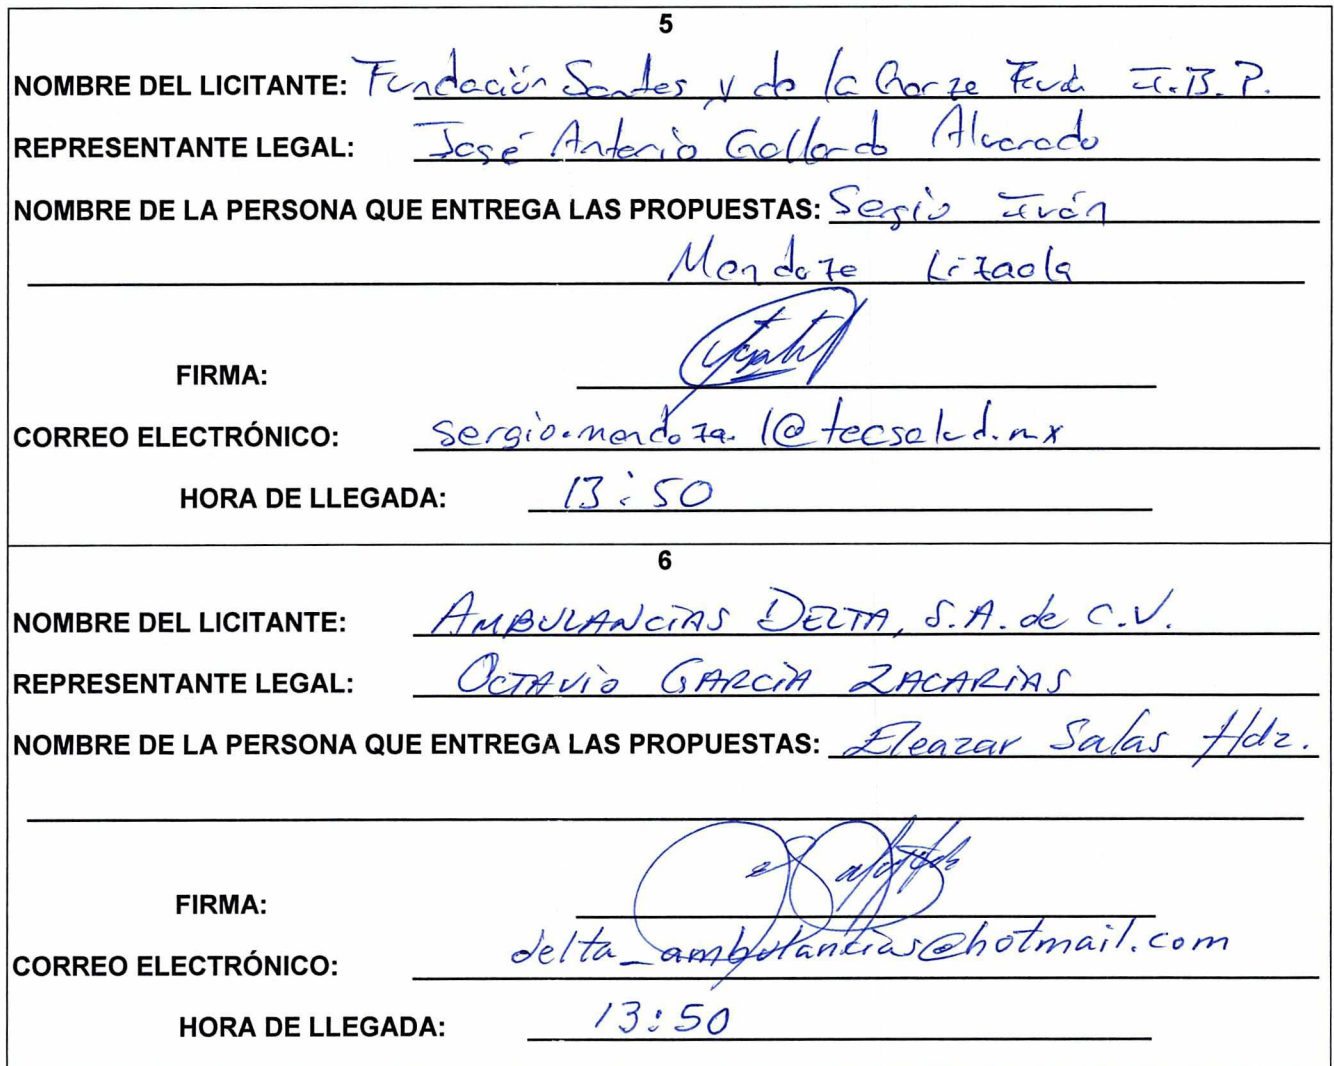 5
NOMBRE DEL LICITANTE: Fundación Santos y de la Garza Evia I.B.P.
REPRESENTANTE LEGAL: José Antonio Gallardo Alvarado
NOMBRE DE LA PERSONA QUE ENTREGA LAS PROPUESTAS: Sergio Iván
Mendoza Lizaola
FIRMA:
CORREO ELECTRÓNICO: sergio.mendoza.l@tecsalud.mx
HORA DE LLEGADA: 13:50
6
NOMBRE DEL LICITANTE: AMBULANCiAS DELTA, S.A. de C.V.
REPRESENTANTE LEGAL: OCTAViO GARCiA ZACARiAS
NOMBRE DE LA PERSONA QUE ENTREGA LAS PROPUESTAS: Eleazar Salas Hdz.
FIRMA:
CORREO ELECTRÓNICO: delta_ambulancias@hotmail.com
HORA DE LLEGADA: 13:50